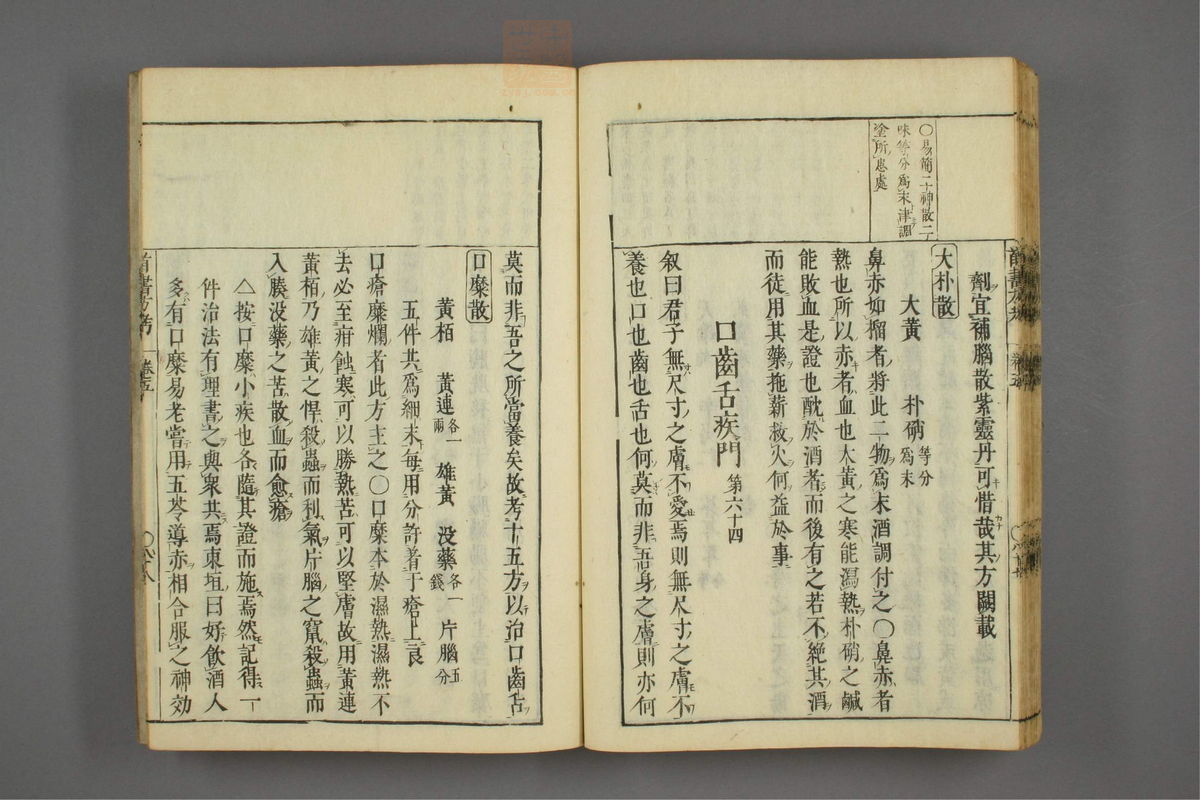 ○易簡二神散二
味等分爲末津調
塗所患處
劑宜補腦散紫靈丹可惜哉其方闕載
大朴散
大黃　朴硝等分爲末
鼻赤如榴者將此二物爲末酒調付之○鼻赤者
熱也所以赤者血也大黃之寒能瀉熱朴硝之鹹
能敗血是證也酖於酒者而後有之若不絶其酒
而徒用其藥拖薪救火何益於事
口齒舌疾門第六十四
叙曰君子無尺寸之膚不愛焉則無尺寸之膚不
養也口也齒也舌也何莫而非吾身之膚則亦何
莫而非吾之所當養矣故考十五方以治口齒舌
口糜散
黃栢　黃連各一兩　雄黃　没藥各一錢　片腦五分
五件共爲細末每用分許著于瘡上良
口瘡糜爛者此方主之○口糜本於濕熱濕熱不
去必至疳蝕寒可以勝熱苦可以堅膚故用黃連
黃栢乃雄黃之悍殺蟲而利氣片腦之竄殺蟲而
入腠没藥之苦散血而愈瘡
△按口糜小疾也各隨其證而施焉然記得一丁
件治法有理書之與衆共焉東垣曰好飲酒人
多有口糜易老嘗用五苓導赤相合服之神効
卷五